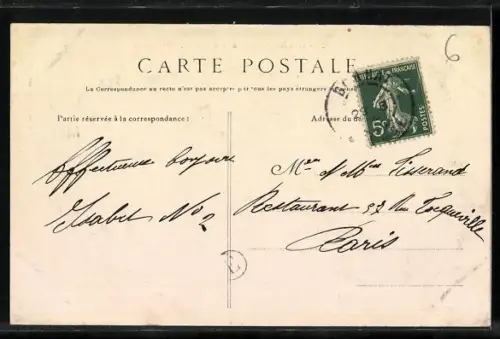 CARTE POSTALE
La Correspondance au recto n'est pas acceptée par tous les pays étrangers
Partie réservée à la correspondance :
Adresse du
FRANÇAISE
POSTES
5c
6
Affectueux bonjour
Isabel No 2
Mr & Mme Tisserand
Restaurant 52 Rue Tocqueville
Paris
E